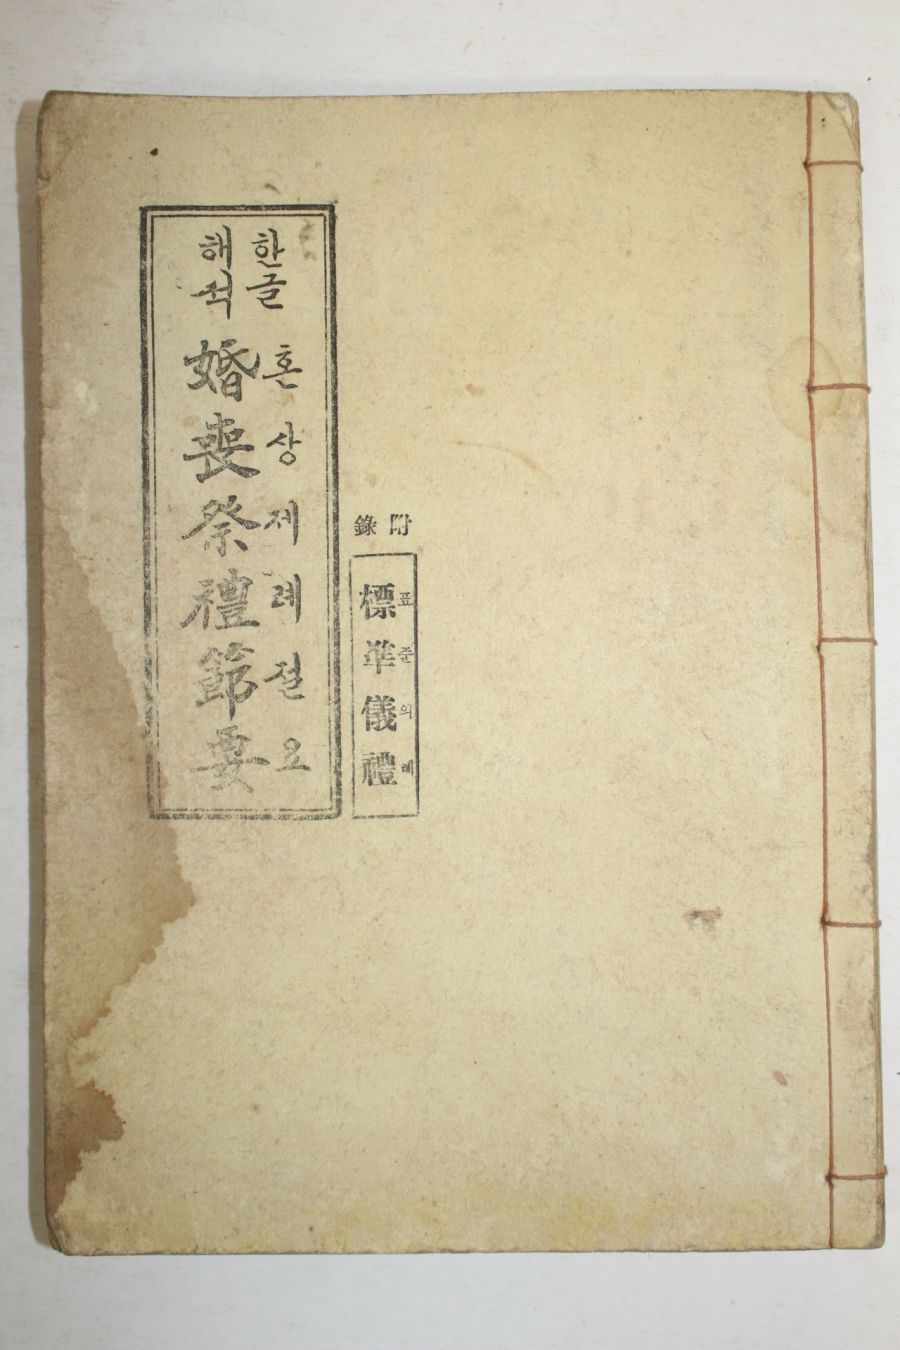 한글
해석
婚喪祭禮節要
혼상제례절요
附錄
標準儀禮
표준의례